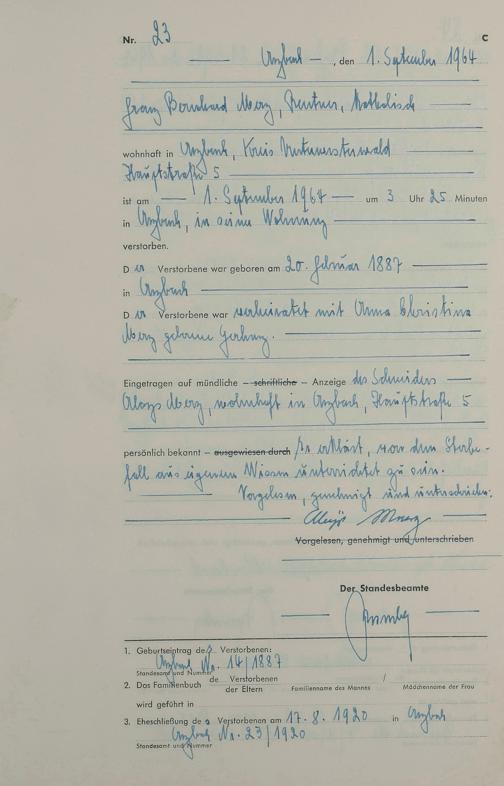 Nr. 23 C
Arzbach, den 1. September 1964
Franz Bernhard Merz, Rentner, katholisch
wohnhaft in Arzbach, Kreis Unterwesterwald
Hauptstraße 5
ist am 1. September 1964 um 3 Uhr 25 Minuten
in Arzbach, in seine Wohnung
verstorben.
Der Verstorbene war geboren am 20. Februar 1887
in Arzbach
Der Verstorbene war verheiratet mit Anna Christina
Merz geborene
Eingetragen auf mündliche – schriftliche – Anzeige des Schneiders
Aloys Merz, wohnhaft in Arzbach, Hauptstraße 5
persönlich bekannt – ausgewiesen durch Er erklärt, von dem Sterbe-
fall aus eigenem Wissen unterrichtet zu sein.
Vorgelesen, genehmigt und unterschrieben.
Aloys Merz
Vorgelesen, genehmigt und unterschrieben
Der Standesbeamte
1. Geburtseintrag des Verstorbenen:
Arzbach Nr. 14/1887
Standesamt und Nummer
2. Das Familienbuch de Verstorbenen der Eltern Familienname des Mannes / Mädchenname der Frau
wird geführt in
3. Eheschließung des Verstorbenen am 17. 8. 1920 in Arzbach
Arzbach Nr. 23/1920
Standesamt und Nummer